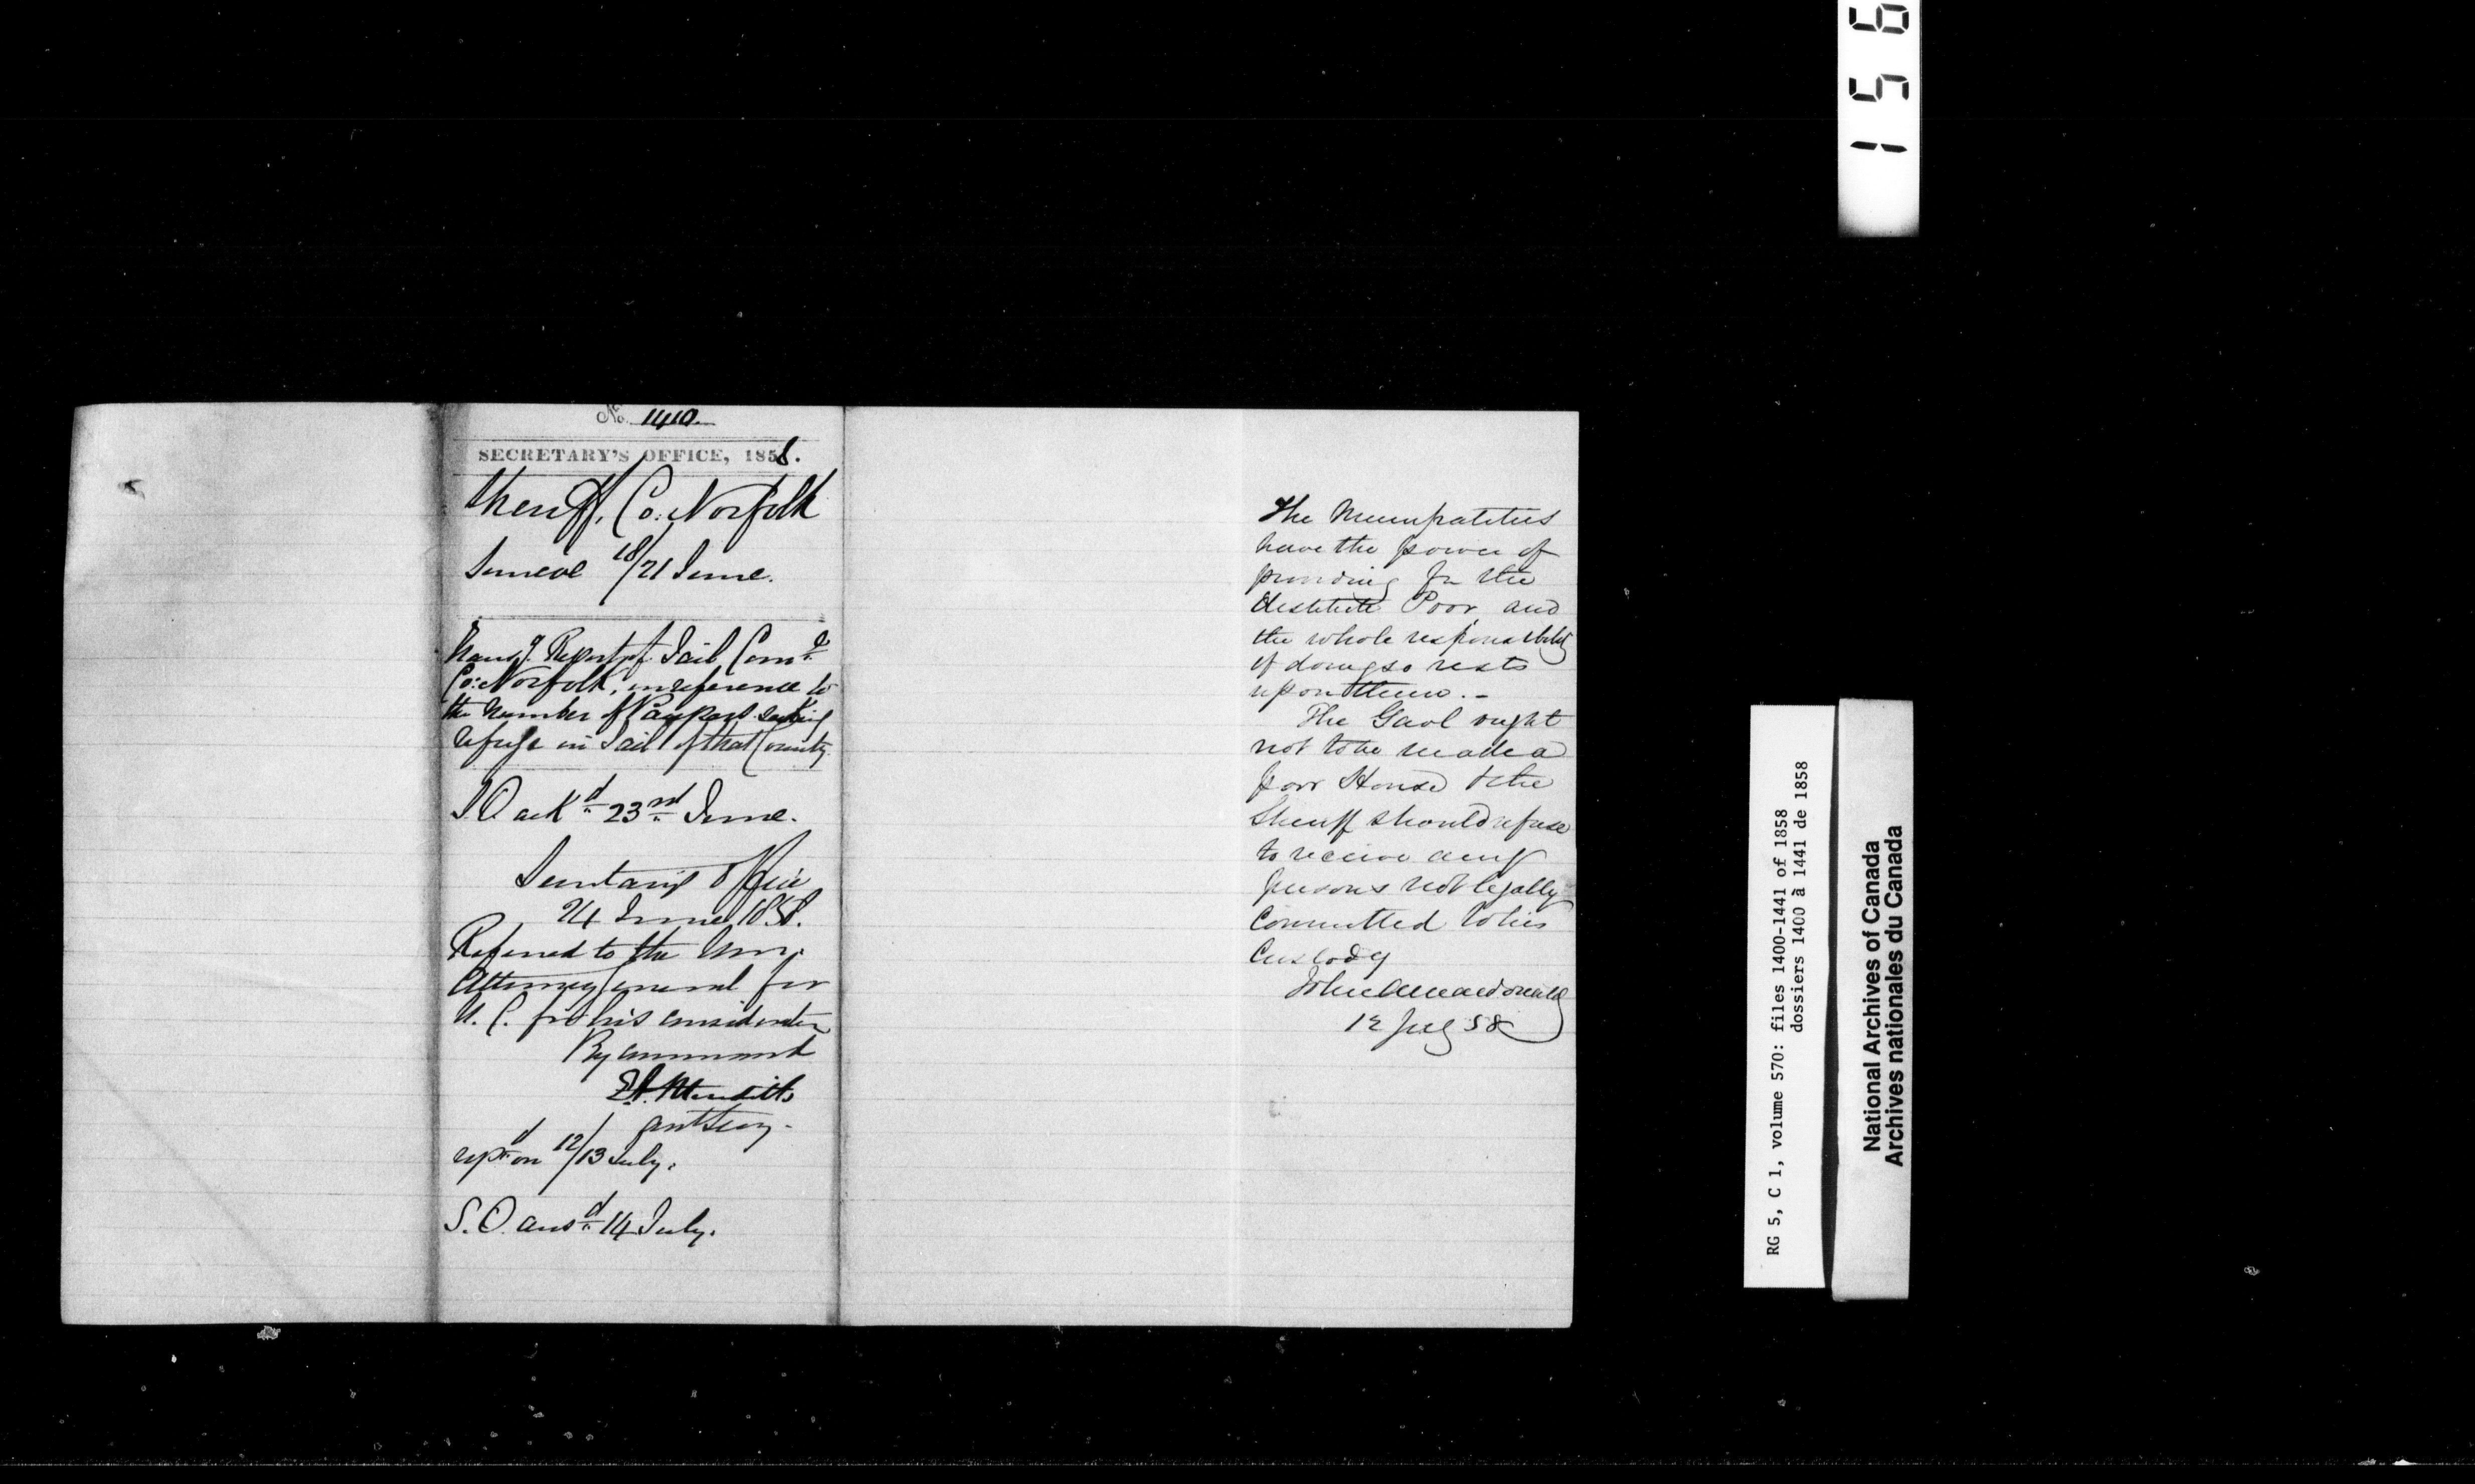 No. 1410.
SECRETARY'S OFFICE, 1858.
Sheriff, Co: Norfolk
Simcoe 18/21 June.
Transg. Report of Jail Comee
Co: Norfolk, in reference to
the number of Paupers seeking
refuge in Jail of that County.
S.O ackd 23rd June.
Secretary's Office
24 June 1858.
Referred to the Hon.
Attorney General for
U. C. for his consideration
By command
E A Meredith
Asst Secy.
repd on 12/13 July.
S.O. ansd 14 July.
The Municipalities
have the power of
providing for the
destitute Poor, and
the whole responsibility
of doing so rests
upon them.-
The Gaol ought
not to be made a
poor House & the
Sheriff should refuse
to receive any
persons not legally
committed to his
Custody
John A Macdonald
12 July 58
156
RG 5, C 1, volume 570: files 1400-1441 of 1858
dossiers 1400 à 1441 de 1858
National Archives of Canada
Archives nationales du Canada